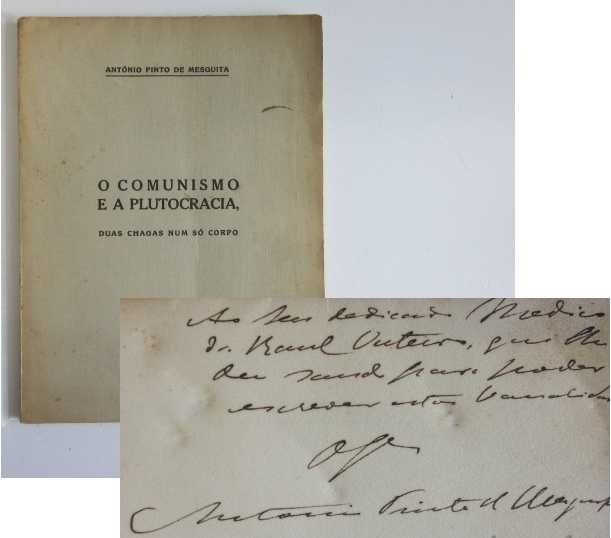 ANTÓNIO PINTO DE MESQUITA
O COMUNISMO
E A PLUTOCRACIA,
DUAS CHAGAS NUM SÓ CORPO
Ao seu dedicado Medico
dr. Raul Outeiro, que lhe
deu saude para poder
escrever estas
António Pinto d Mesquita